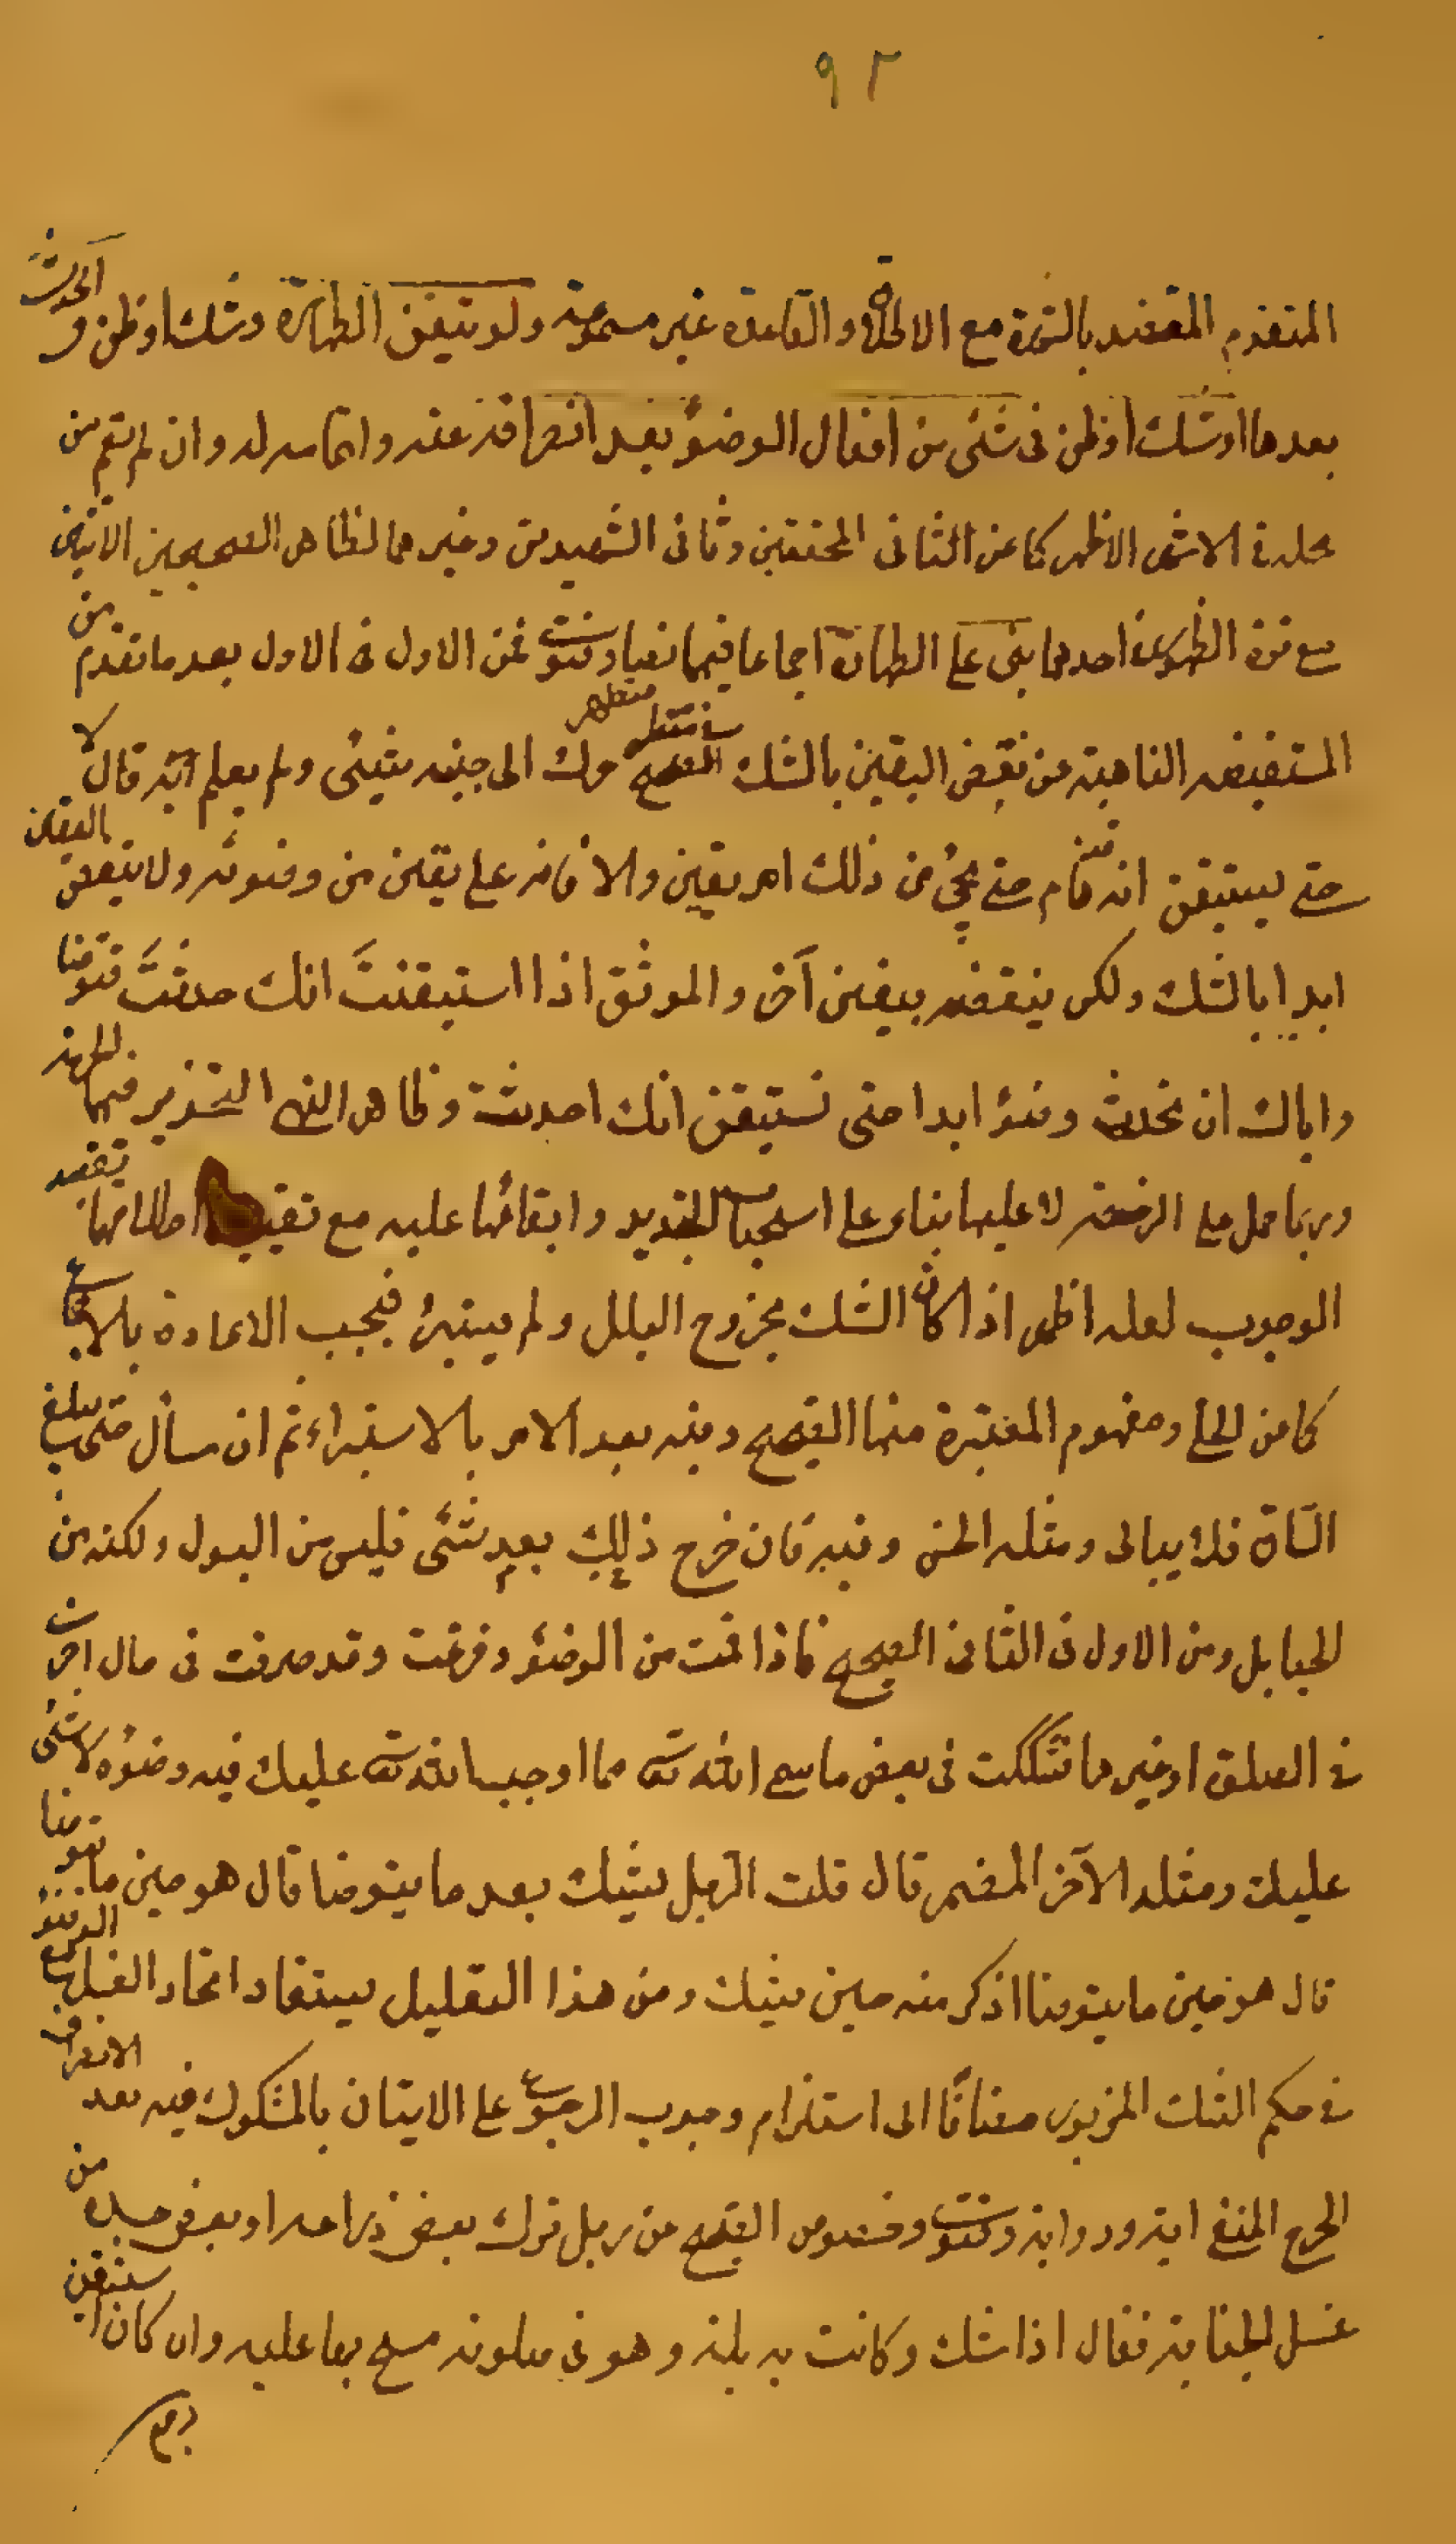 ٩٢
المتقدم المعتضد بالشهرة مع الاطلاق والقاعدة غير مسموعة ولو تيقن الطهارة وشك او ظن في الحدث
بعدها او شك او ظن فى شئ من افعال الوضوء بعد انصرافه عنه واتمامه له وان لم يقم من
محله فى الاشهر الاظهر كما عن الثانى المحققين وثانى الشهيدين وغيرهما لظاهر الصحيحين الاتيين
مع قوة الظهور فى احدهما بنى على الطهارة اجماعا فيهما نصا وفتوى فمن الاول فى الاول بعد ما تقدم من
المستفيضه الناهية عن نقض اليقين بالشك الصحيح حرك الى جنبه شئ ولم يعلم به قال لا
حتى يستيقن انه قد نام حتى يجئ من ذلك امر بين والا فانه على يقين من وضوئه ولا ينقض اليقين
ابدا بالشك ولكن ينقضه بيقين آخر والموثق اذا استيقنت انك حدثت فتوضأ
واياك ان تحدث وضوء ابدا حتى تستيقن انك احدثت وظاهر النهى التحذير فيما
وربما حمل على الرخصة لا عليها بناء على استحباب التجديد وابقائها عليه مع تقييد اطلاقها بقصد
الوجوب لعله اظهر اذا كان الشك بخروج البلل ولم يستبرئ فيجب الاعادة بالاجماع
كما عن الحلى ومفهوم المعتبرة منها الصحيح وفيه بعد الامر بالاستبراء ثم ان سال حتى يبلغ
الساق فلا يبالى ومثله الحسن وفيه فان خرج ذلك بعد شئ فليس من البول ولكنه من
الحبايل ومن الاول فى الثانى الصحيح فاذا قمت من الوضوء وفرغت وقد صرفت فى حال اخرى
فى الصلوة او غيرها فشككت فى بعض ما سمى الله تعالى مما اوجب الله تعالى عليك فيه وضوءه لا شئ
عليك ومثله الآخر المضمر قال قلت الرجل يشك بعد ما يتوضأ قال هو حين ما يتوضأ
قال هو حين ما يتوضأ اذكر منه حين يشك ومن هذا التعليل يستفاد اتحاد الغسل مع الوضوء
فى حكم الشك المزبور مضافا الى استلزام وجوب الرجوع على الايتان بالمشكوك فيه بعد الانصراف
الحرج المنفى اية ورواية وفتوى وخصوص الصحيح عن رجل ترك بعض ذراعه او بعض جسده من
غسل الجنابة فقال اذا شك وكانت به بلة وهو فى صلوته مسح بها عليه وان كان استيقن
رجع